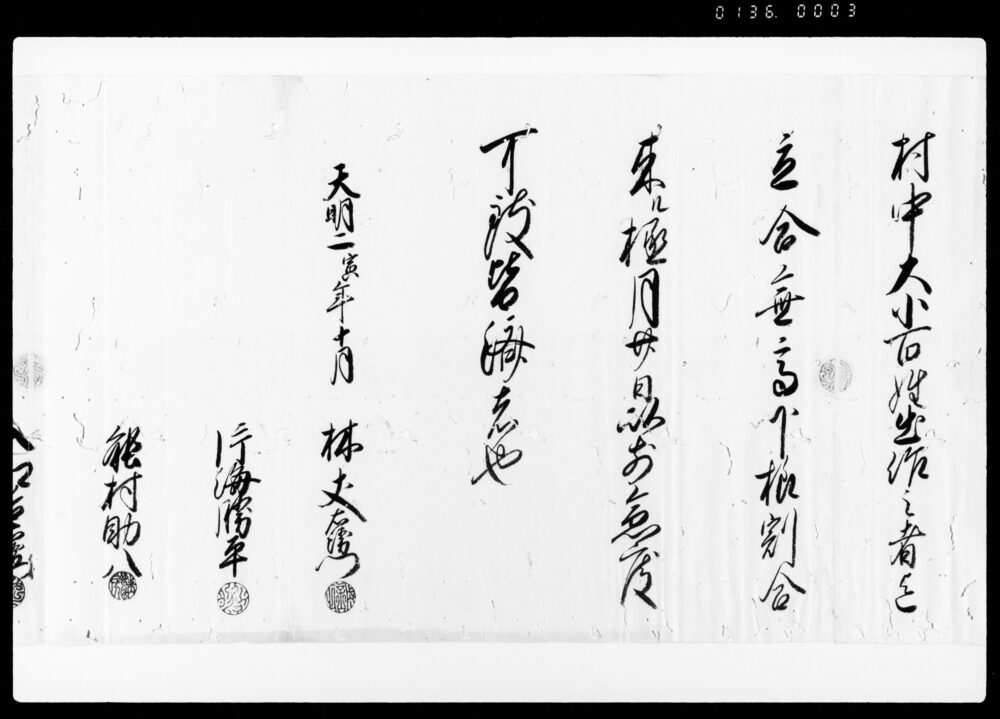 0136. 0003
村中大小百姓出作之者迄
立合無高下相割合
来ル極月廿日以前急度
可致皆済者也
天明二寅年十月
林丈左衛門
片海勝平
村助八